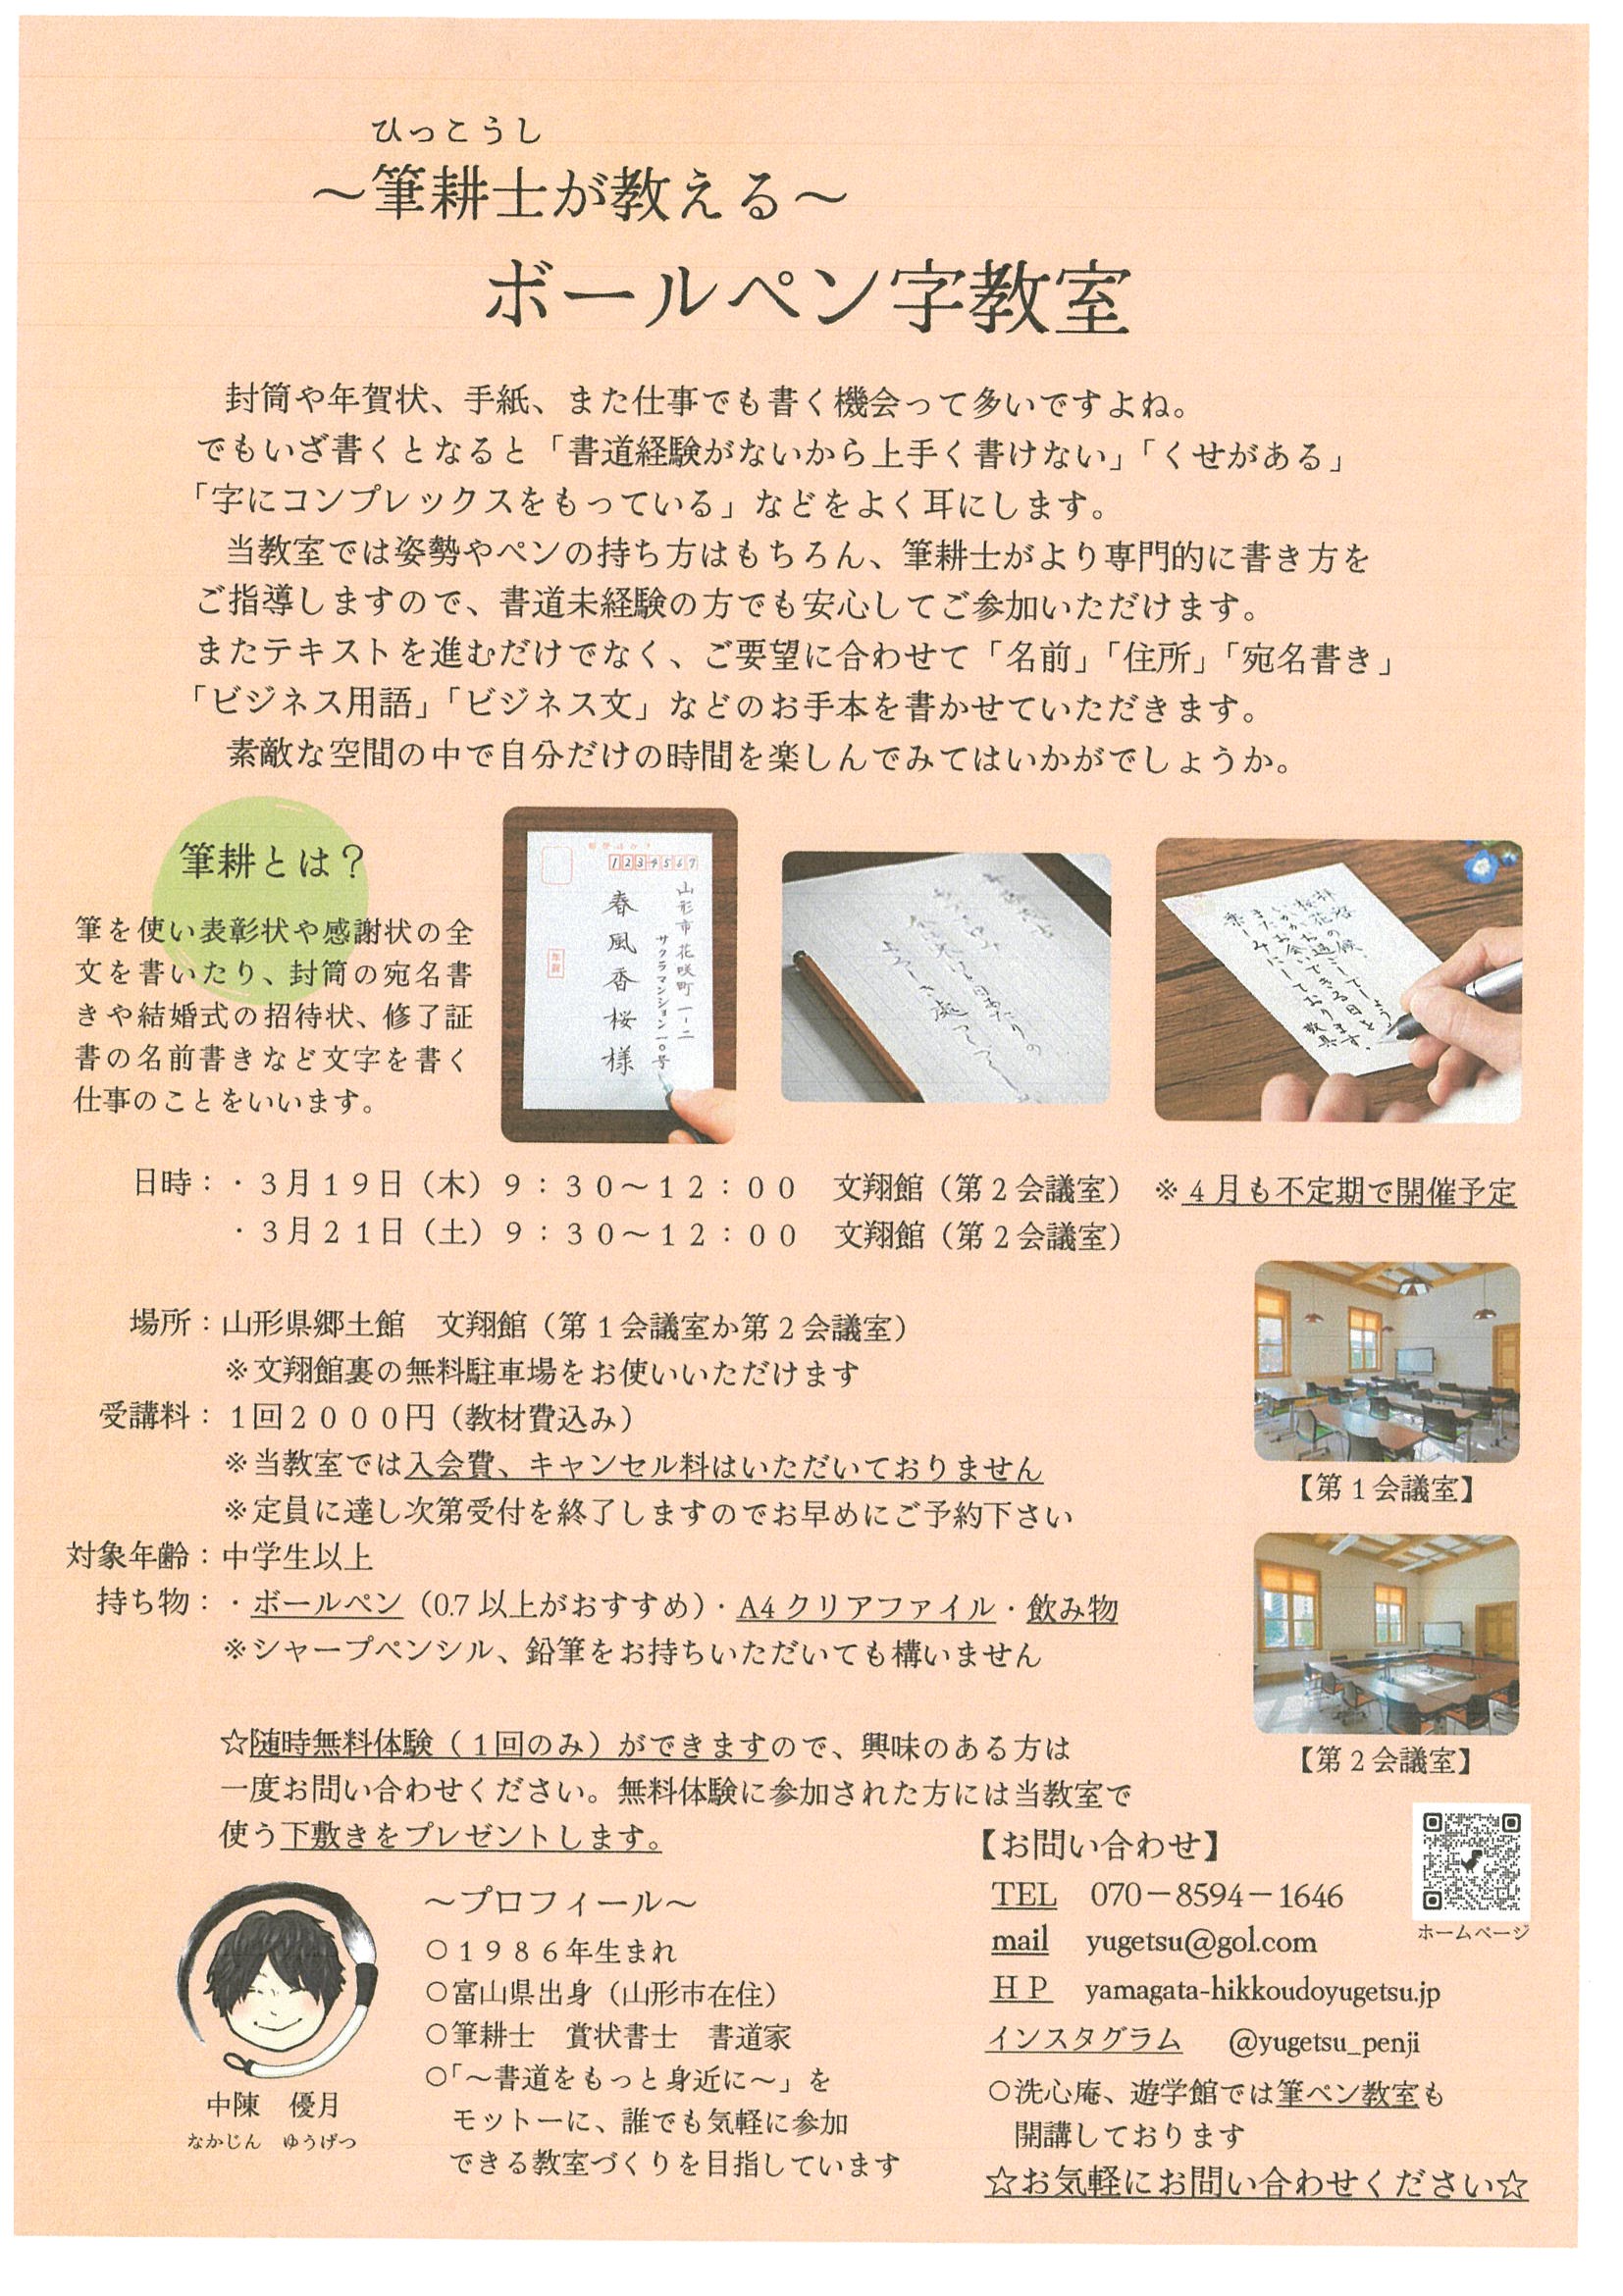 ひっこうし
～筆耕士が教える～
ボールペン字教室
封筒や年賀状、手紙、また仕事でも書く機会って多いですよね。
でもいざ書くとなると「書道経験がないから上手く書けない」「くせがある」
「字にコンプレックスをもっている」などをよく耳にします。
当教室では姿勢やペンの持ち方はもちろん、筆耕士がより専門的に書き方を
ご指導しますので、書道未経験の方でも安心してご参加いただけます。
またテキストを進むだけでなく、ご要望に合わせて「名前」「住所」「宛名書き」
「ビジネス用語」「ビジネス文」などのお手本を書かせていただきます。
素敵な空間の中で自分だけの時間を楽しんでみてはいかがでしょうか。
筆耕とは？
筆を使い表彰状や感謝状の全
文を書いたり、封筒の宛名書
きや結婚式の招待状、修了証
書の名前書きなど文字を書く
仕事のことをいいます。
1234567
山形市花咲町一-二
サクラマンション一〇号
春風香桜様
年賀
日時：・３月１９日（木）９：３０～１２：００　文翔館（第２会議室）　※４月も不定期で開催予定
・３月２１日（土）９：３０～１２：００　文翔館（第２会議室）
場所：山形県郷土館　文翔館（第１会議室か第２会議室）
※文翔館裏の無料駐車場をお使いいただけます
受講料：１回２０００円（教材費込み）
※当教室では入会費、キャンセル料はいただいておりません
※定員に達し次第受付を終了しますのでお早めにご予約下さい
対象年齢：中学生以上
持ち物：・ボールペン（0.7以上がおすすめ）・A4クリアファイル・飲み物
※シャープペンシル、鉛筆をお持ちいただいても構いません
【第１会議室】
【第２会議室】
☆随時無料体験（１回のみ）ができますので、興味のある方は
一度お問い合わせください。無料体験に参加された方には当教室で
使う下敷きをプレゼントします。
中陳　優月
なかじん　ゆうげつ
～プロフィール～
○１９８６年生まれ
○富山県出身（山形市在住）
○筆耕士　賞状書士　書道家
○「～書道をもっと身近に～」を
モットーに、誰でも気軽に参加
できる教室づくりを目指しています
【お問い合わせ】
TEL　070－8594－1646
mail　yugetsu@gol.com
ＨＰ　yamagata-hikkoudoyugetsu.jp
インスタグラム　@yugetsu_penji
ホームページ
○洗心庵、遊学館では筆ペン教室も
開講しております
☆お気軽にお問い合わせください☆